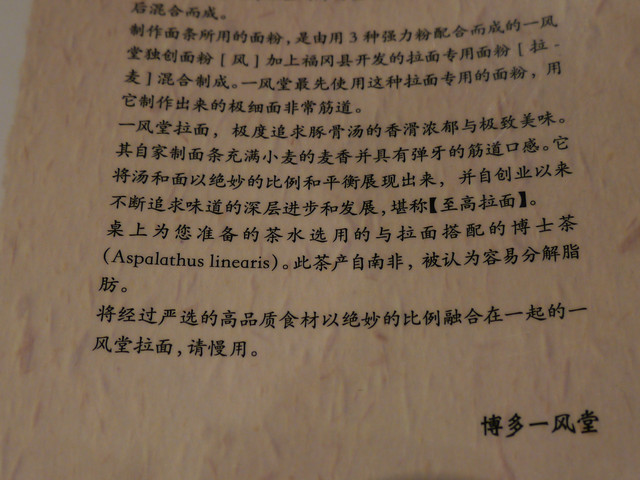 后混合而成。
制作面条所用的面粉，是由用 3 种强力粉配合而成的一风
堂独创面粉［风］加上福冈县开发的拉面专用面粉［拉-
麦］混合制成。一风堂最先使用这种拉面专用的面粉，用
它制作出来的极细面非常筋道。
一风堂拉面，极度追求豚骨汤的香滑浓郁与极致美味。
其自家制面条充满小麦的麦香并具有弹牙的筋道口感。它
将汤和面以绝妙的比例和平衡展现出来，并自创业以来
不断追求味道的深层进步和发展，堪称【至高拉面】。
桌上为您准备的茶水选用的与拉面搭配的博士茶
（Aspalathus linearis）。此茶产自南非，被认为容易分解脂
肪。
将经过严选的高品质食材以绝妙的比例融合在一起的一
风堂拉面，请慢用。
博多一风堂